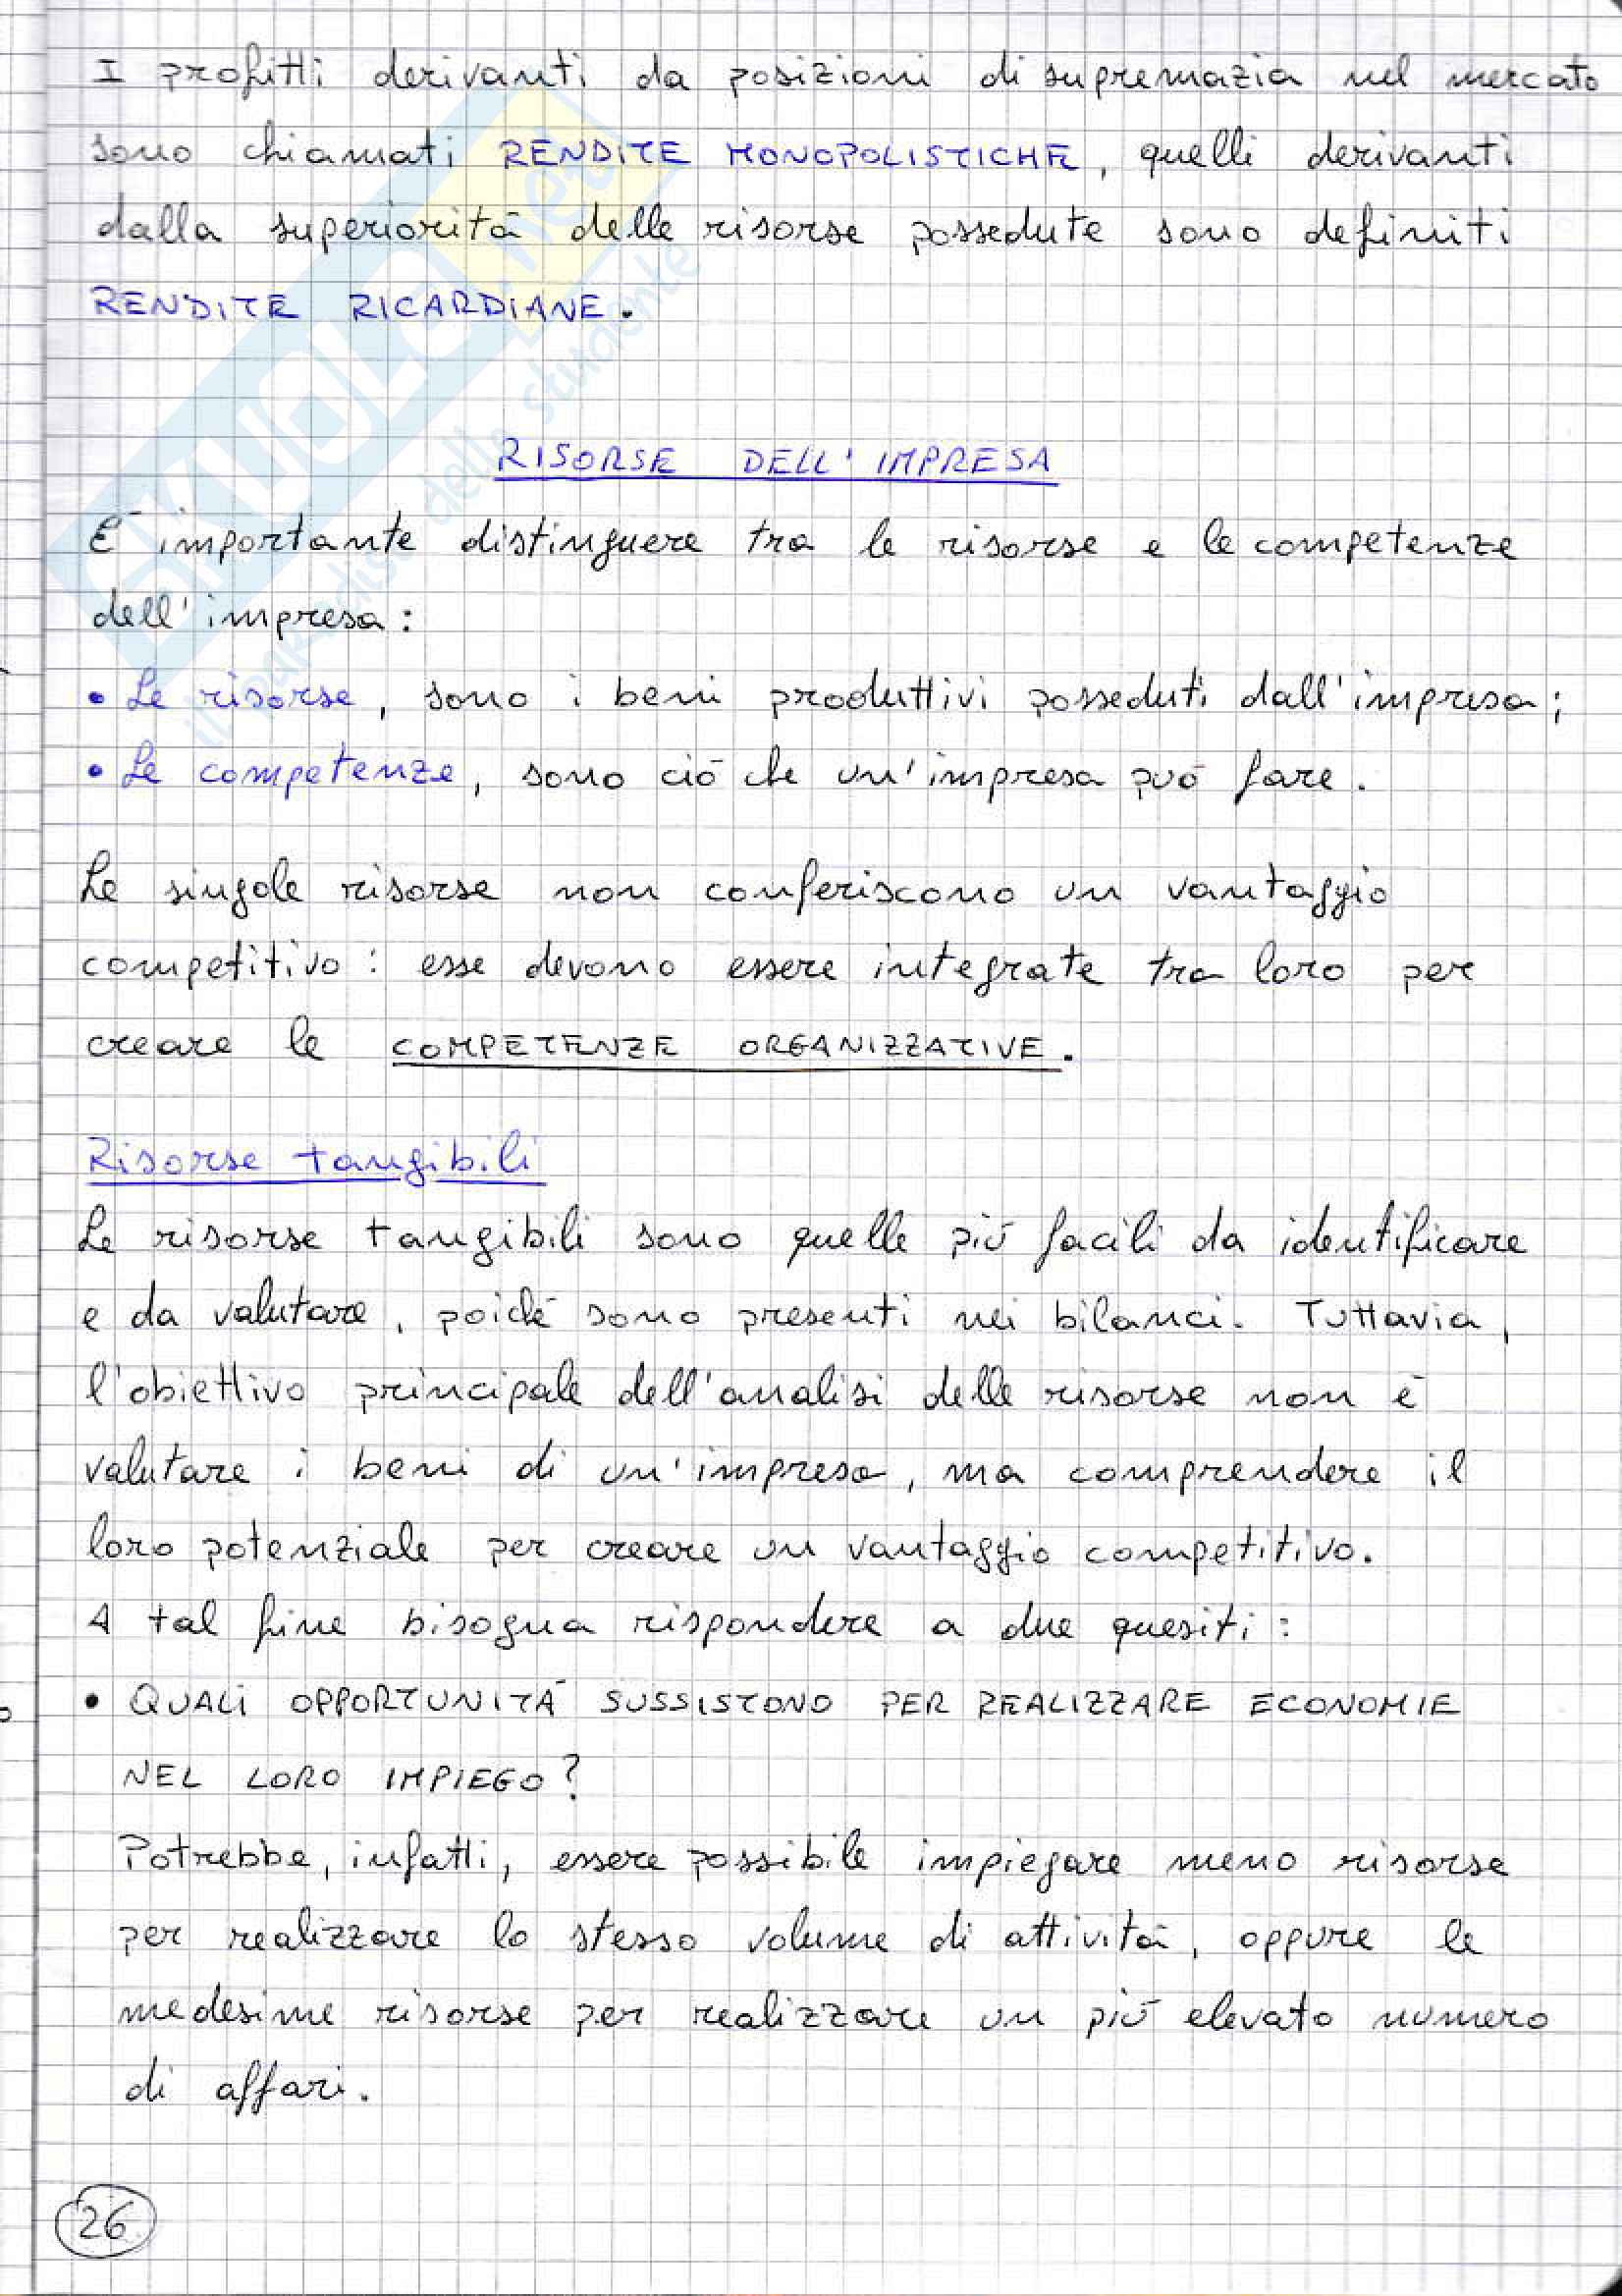 I profitti derivanti da posizioni di supremazia nel mercato
sono chiamati RENDITE MONOPOLISTICHE, quelli derivanti
dalla superiorità delle risorse possedute sono definiti
RENDITE RICARDIANE.
RISORSE DELL'IMPRESA
È importante distinguere tra le risorse e le competenze
dell'impresa:
• Le risorse, sono i beni produttivi posseduti dall'impresa;
• Le competenze, sono ciò che un'impresa può fare.
Le singole risorse non conferiscono un vantaggio
competitivo: esse devono essere integrate tra loro per
creare le COMPETENZE ORGANIZZATIVE.
Risorse tangibili
Le risorse tangibili sono quelle più facili da identificare
e da valutare, poiché sono presenti nei bilanci. Tuttavia,
l'obiettivo principale dell'analisi delle risorse non è
valutare i beni di un'impresa, ma comprendere il
loro potenziale per creare un vantaggio competitivo.
A tal fine bisogna rispondere a due quesiti:
• QUALI OPPORTUNITÀ SUSSISTONO PER REALIZZARE ECONOMIE
NEL LORO IMPIEGO?
Potrebbe, infatti, essere possibile impiegare meno risorse
per realizzare lo stesso volume di attività, oppure le
medesime risorse per realizzare un più elevato numero
di affari.
26
SKUOLA.net
il paradiso dello studente